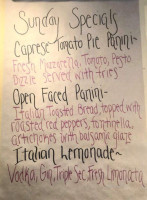 Sunday Specials
Caprese Tomato Pie Panini-
Fresh Mozzarella, Tomato, Pesto
Drizzle served with fries
Open Faced Panini-
Italian Toasted Bread, topped with
roasted red peppers,
artichokes with balsamic glaze
Italian Lemonade~
Vodka, Gin, Triple Sec, fresh Limonata